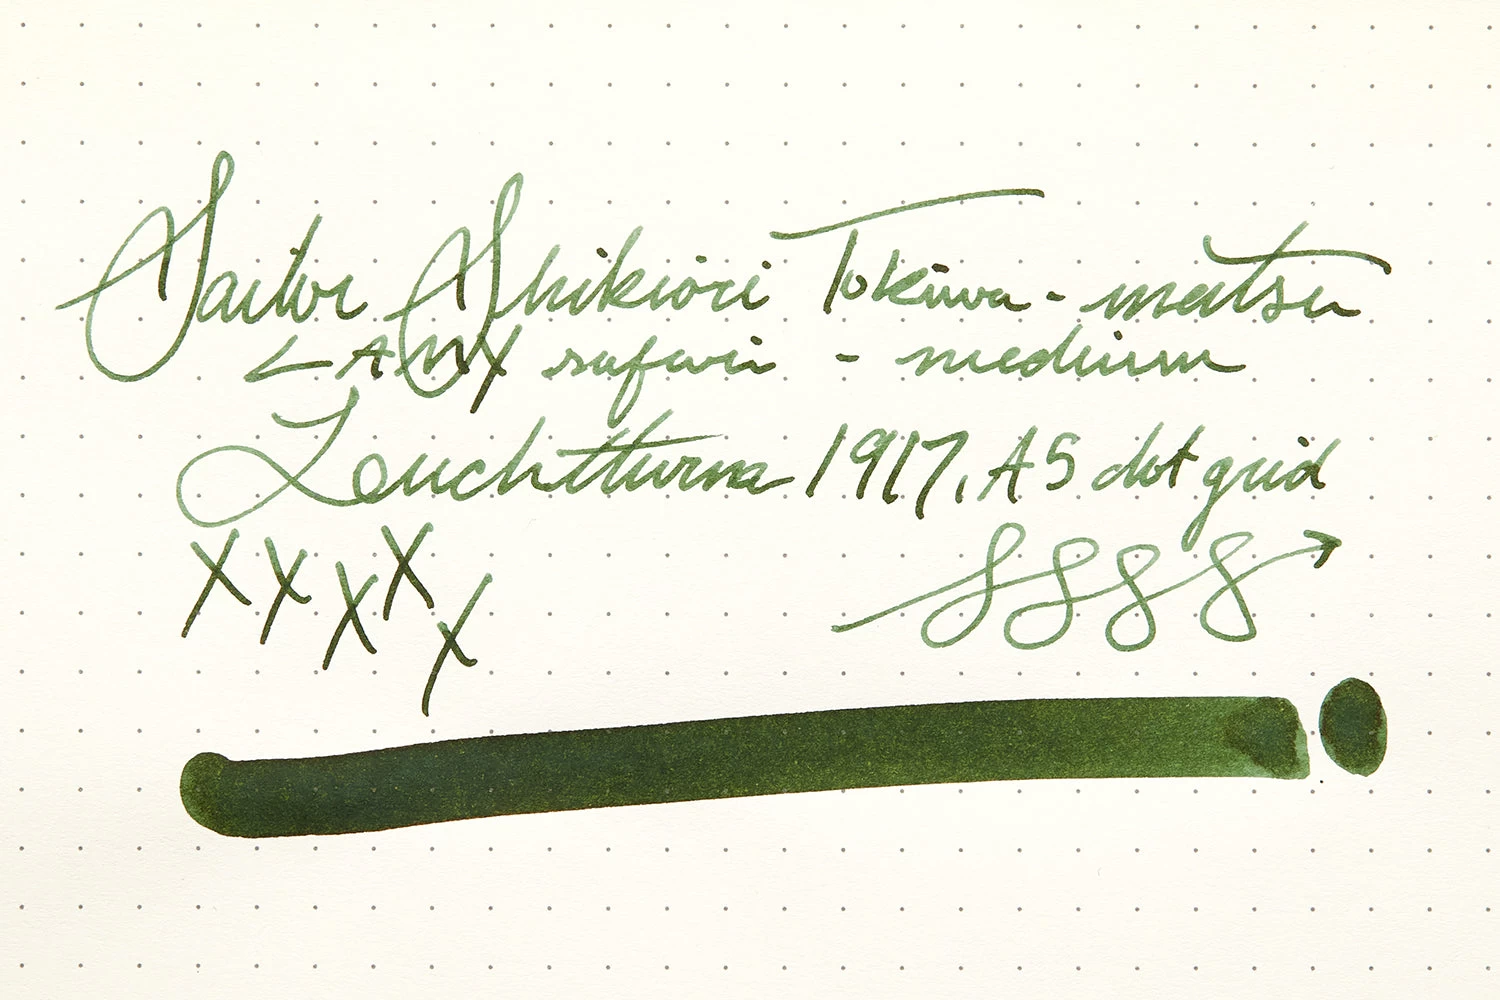 Sailor Shikiori Tokiwa-matsu
LAMY safari - medium
Leuchtturm 1917, A5 dot grid
XXXXX